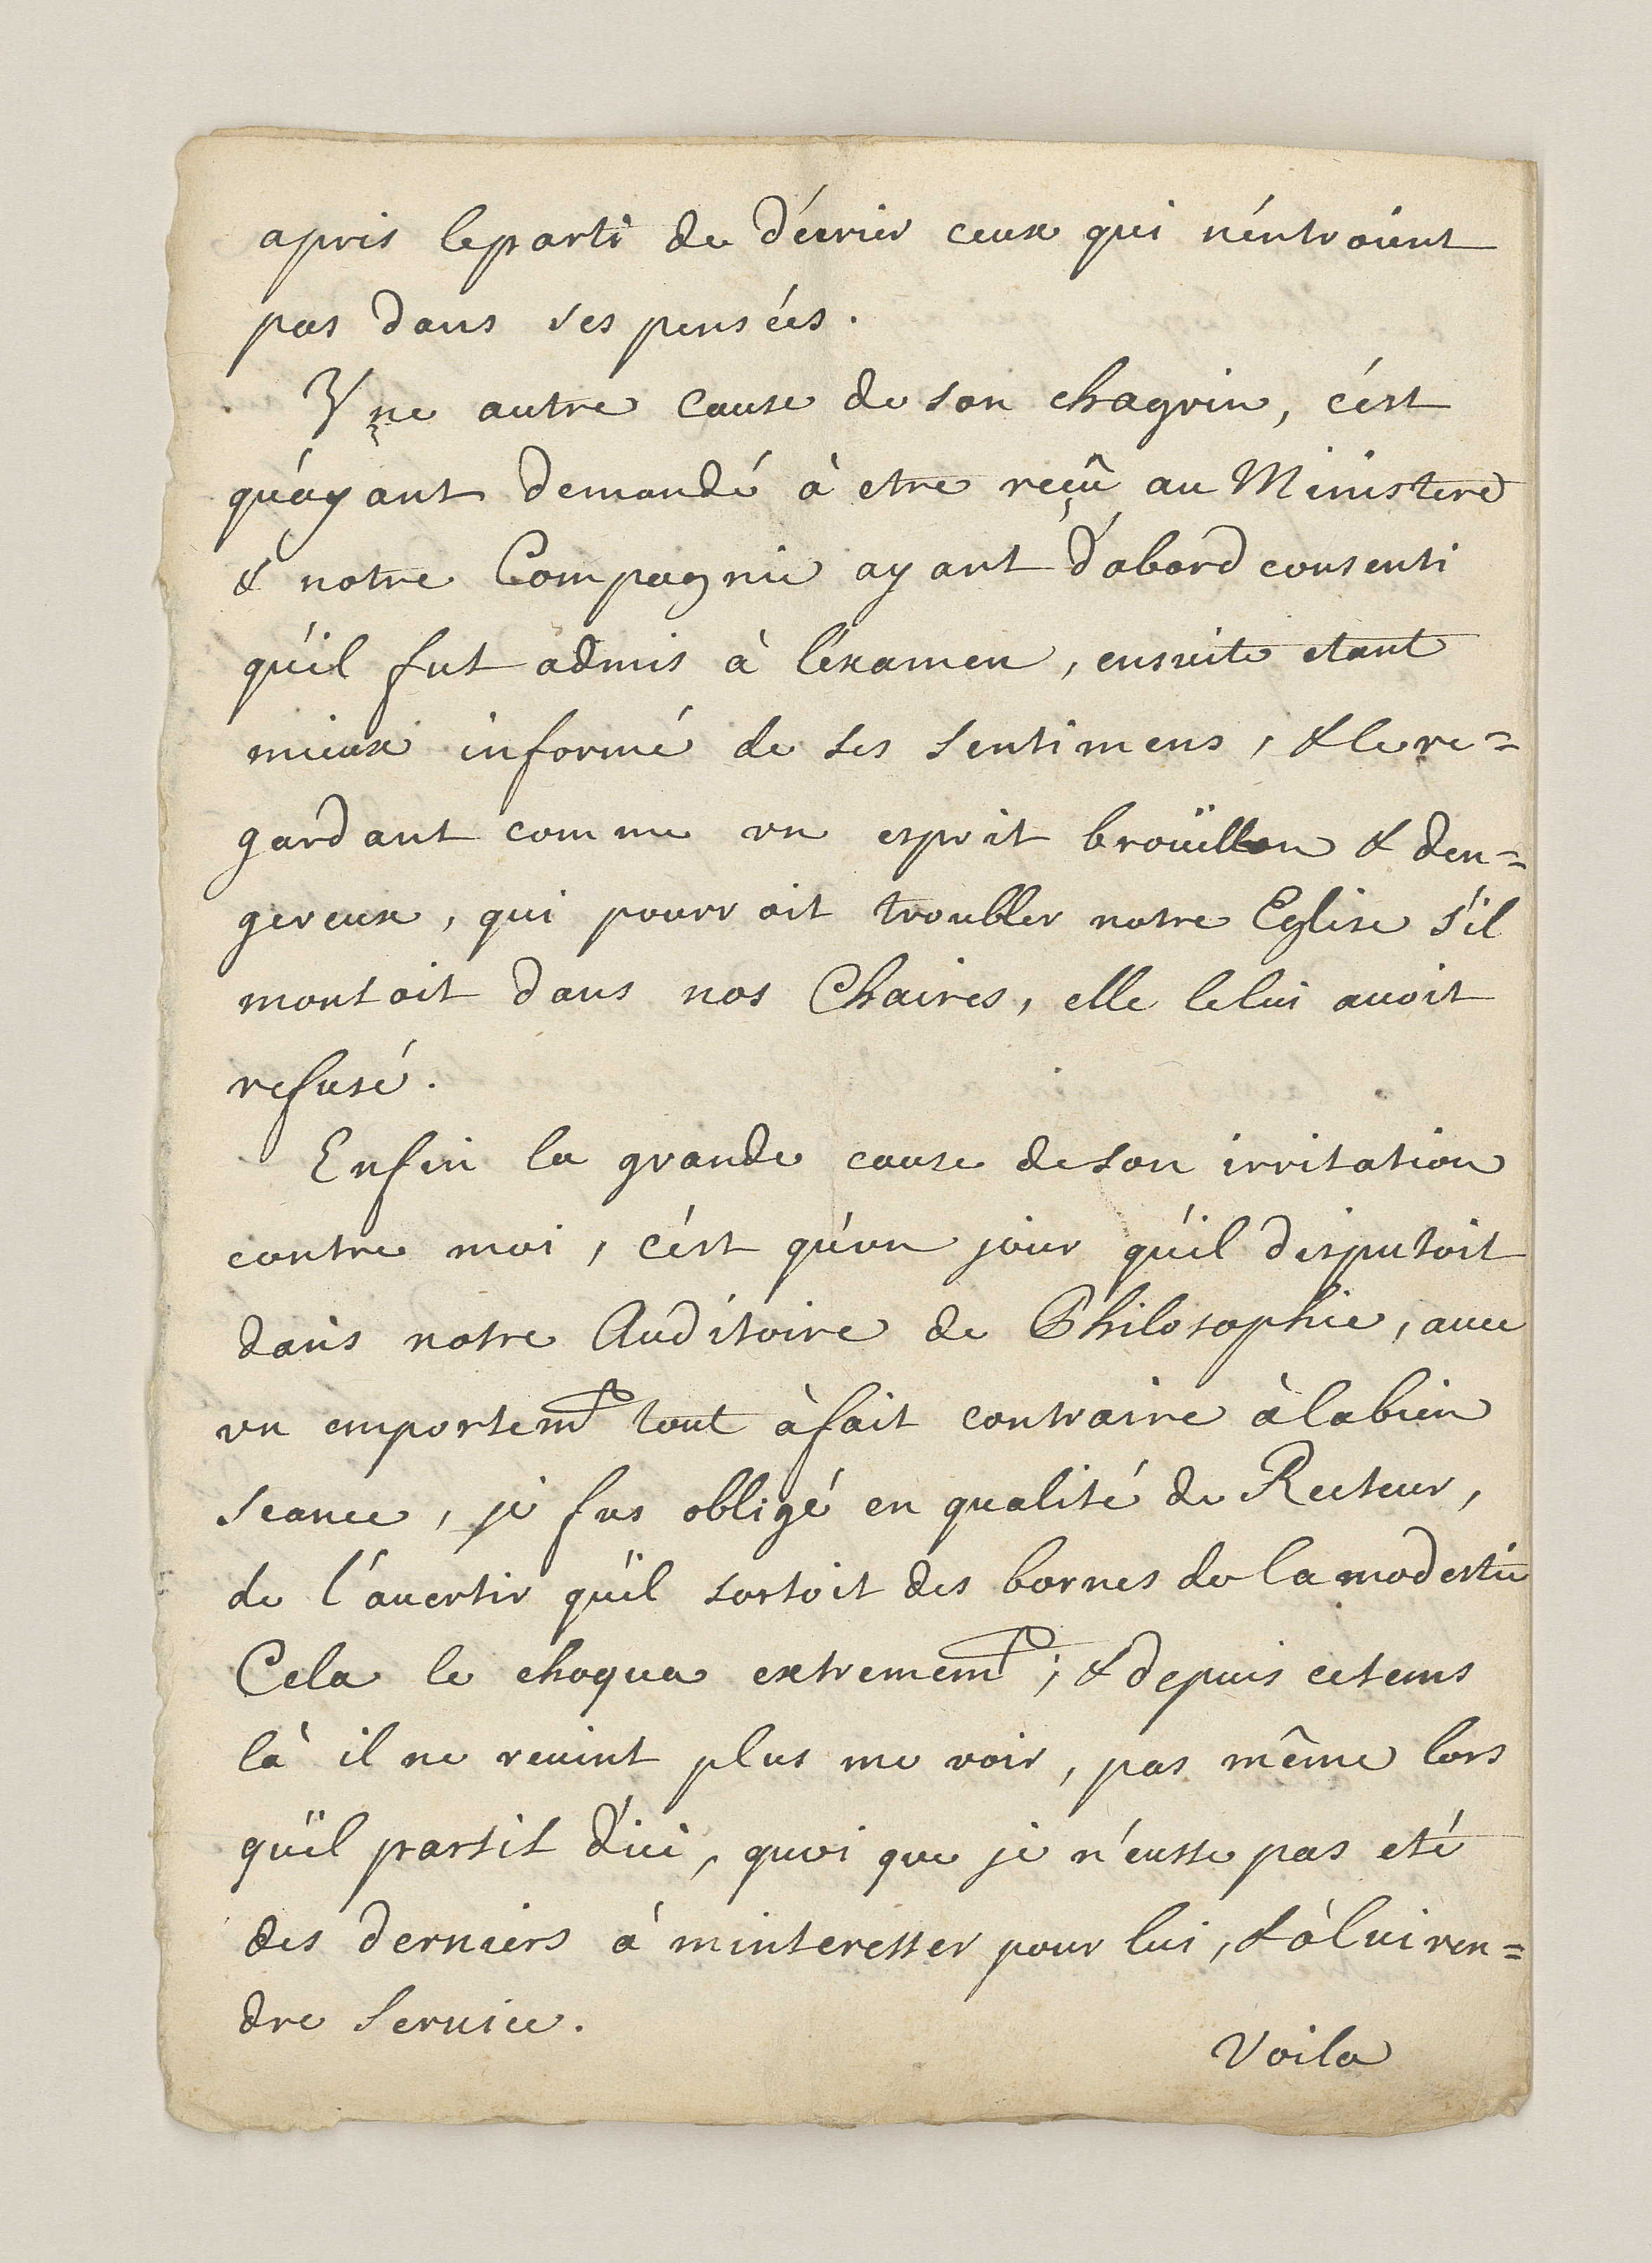 a pris le parti de d'écrier ceux qui n'éntroient
pas dans ses pensées.
Vne autre cause de son chagrin, c'ést
qu'áyant demandé à etre reçû au Ministere
& notre Compagnie ayant d'abord consenti
qu'il fut admis à l'éxamen, ensuite etant
mieux informé de ses sentimens, & le re=
gardant comme vn esprit broüillon & den=
gereux, qui pourroit troubler notre Eglise s'il
montoit dans nos Chaires, elle le lui auoit
refusé.
Enfin la grande cause de son irritation
contre moi, c'ést qu'vn jour qu'il disputoit
dans notre Auditoire de Philosophie, auec
vn emportemt tout à fait contraire à la bien
seance, je fus obligé en qualité de Recteur,
de l'auertir qu'il sortoit des bornes de la modestie
Cela le choqua extrememt; & depuis ce tems
là il ne reuint plus me voir, pas même lors
qu'il partit d'ici, quoi que je n'eusse pas eté
des derniers à m'interesser pour lui, & à lui ren=
dre seruice.
Voila